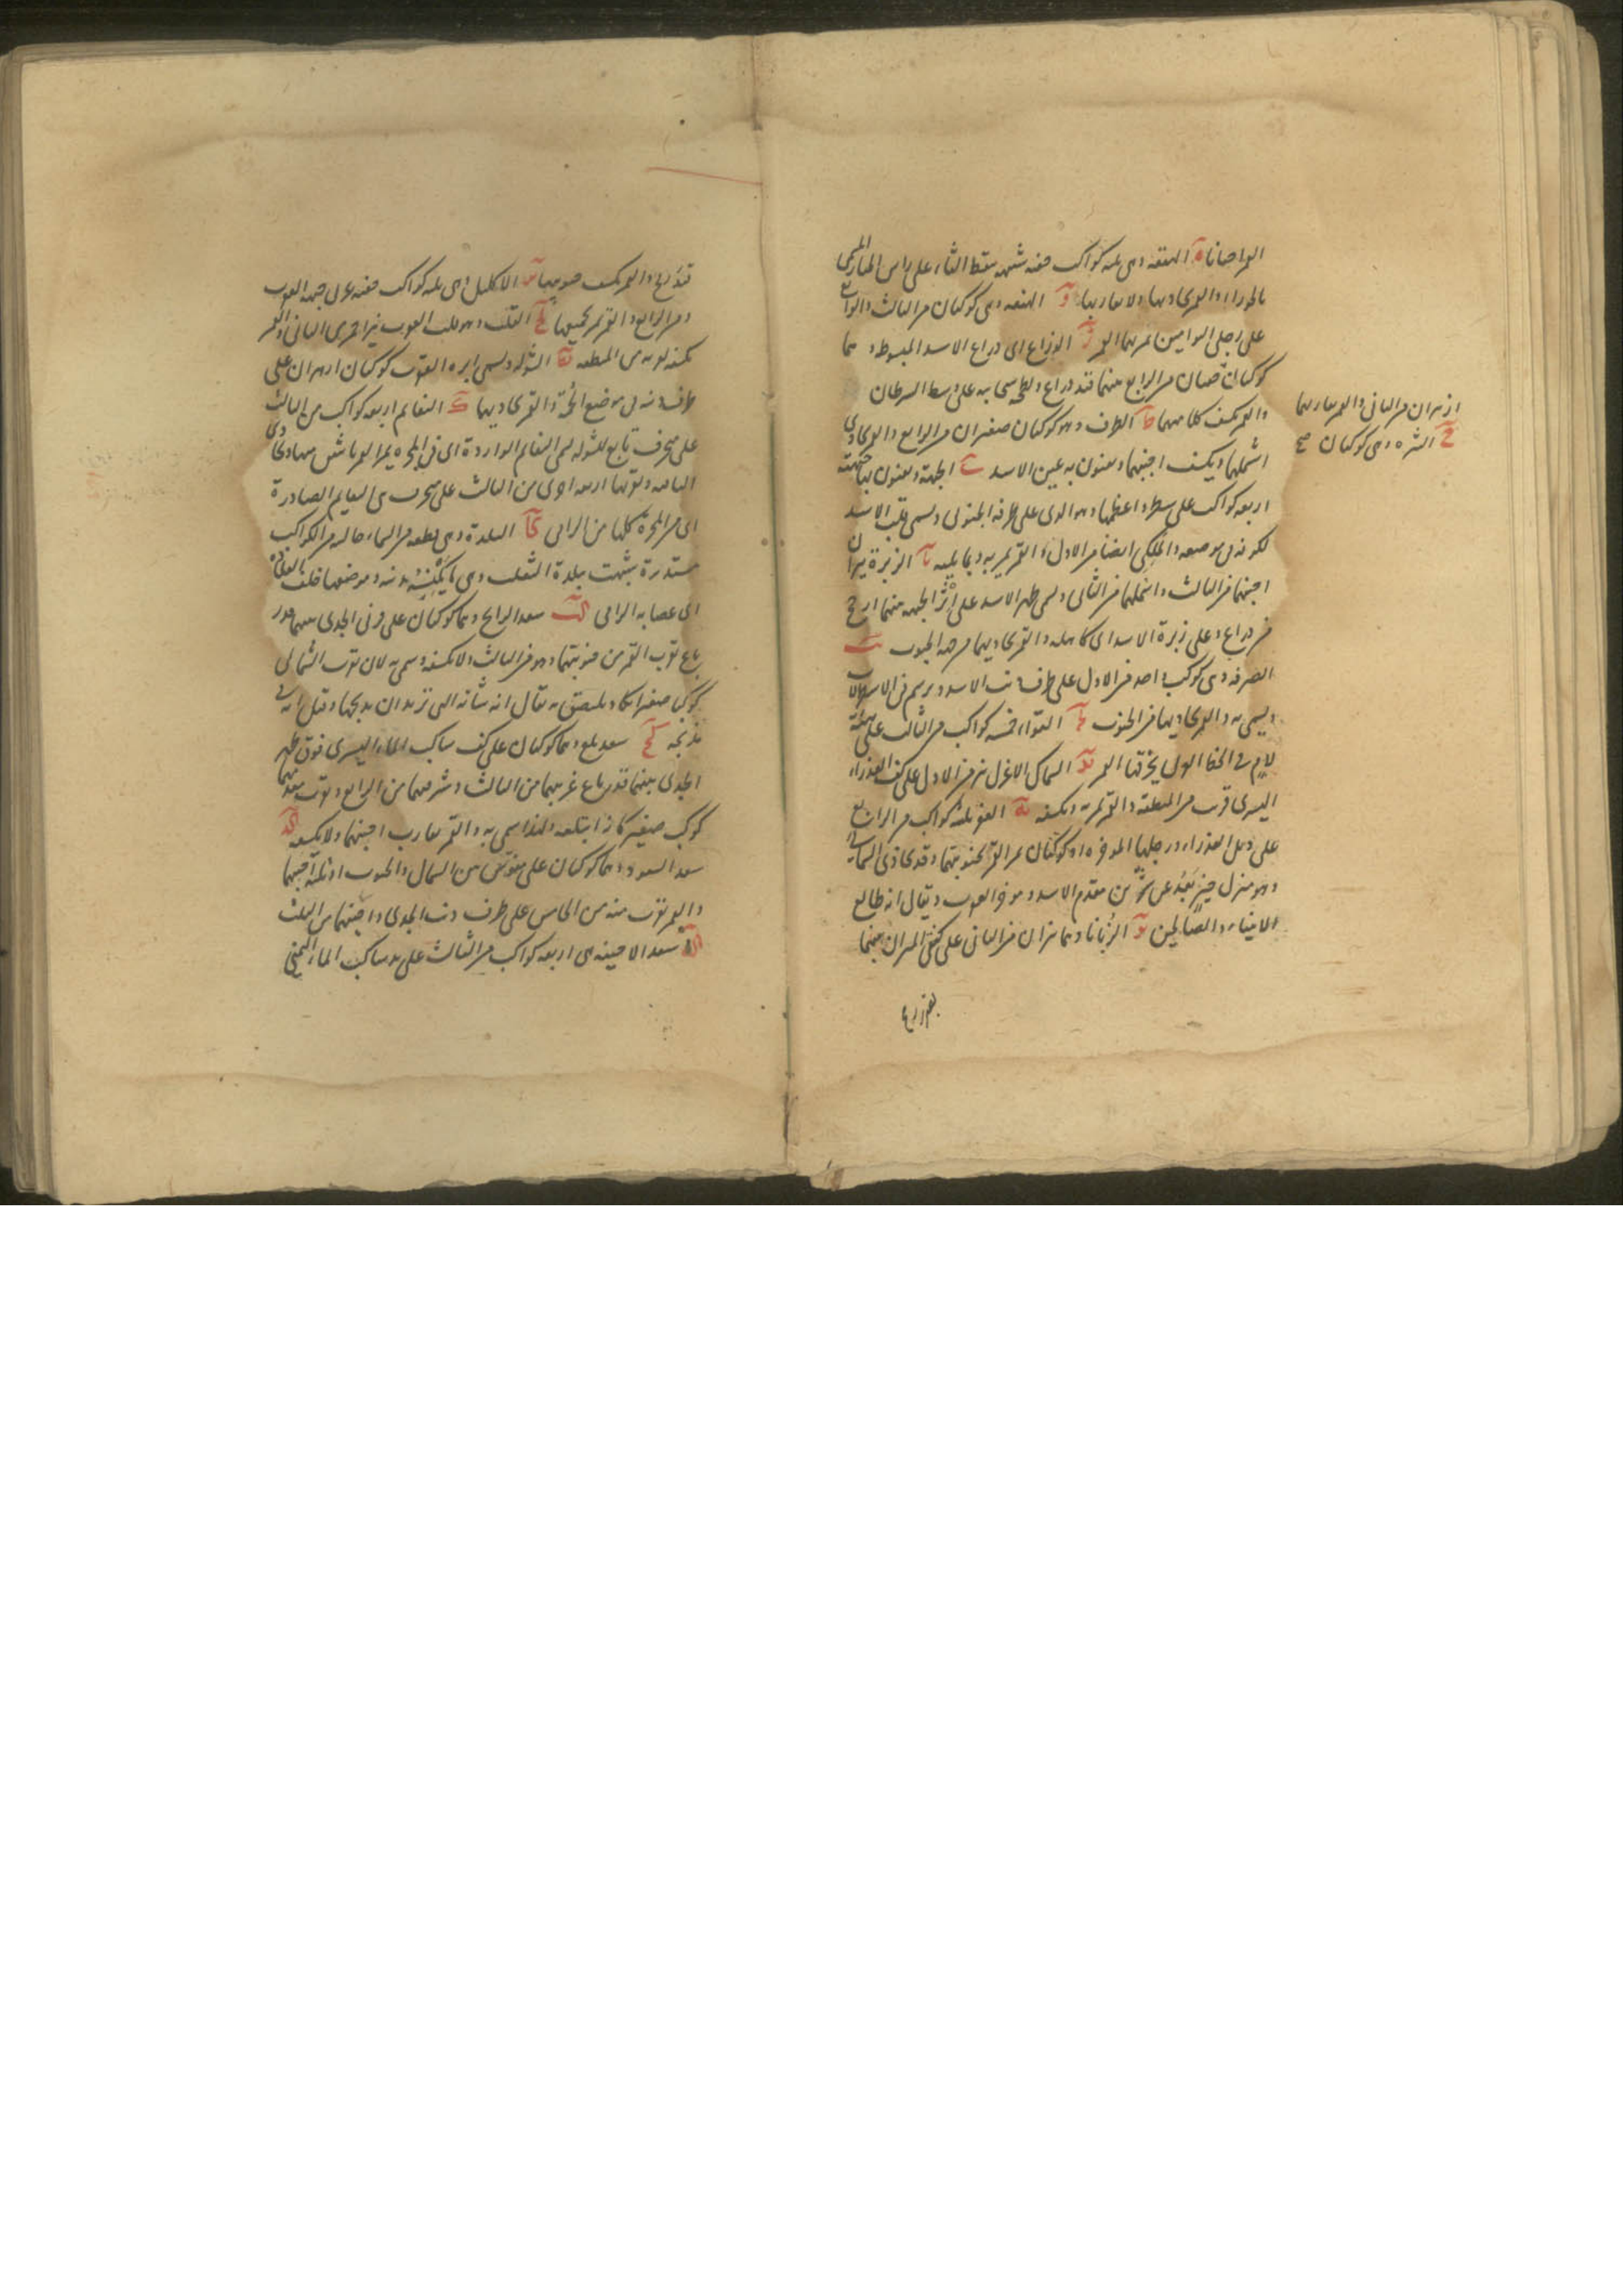 القمر احيانا ه الهقعه وهى ثلثه كواكب خفيه شبهه بنقط الثاء على راس الجبار المسمى
بالجوزاء والقمر يحاذيها ولا يقاربها و الهنعه وهى كوكبان من الثالث والرابع
على رجلى التوامين يمر بهما القمر ز الذراع اى ذراع الاسد المبسوطه وهما
كوكبان من الرابع بينهما قدر ذراع على وسط السرطان
ازهران من الثانى والقمر يقاربهما
ح النثره وهى كوكبان صح
والقمر يكسف كلا منهما ط الطرف وهو كوكبان صغيران من الرابع والقمر يحاذى
اشملهما ويكسف اجنبهما ويعنون به عين الاسد ى الجبهة ويعنون بها جبهته
اربعه كواكب على سطر واعظمها وهو الذى على طرفه الجنوبى ويسمى قلب الاسد
لكونه فى موضعه والملكى ايضا من الاول والقمر يمر به وبما يليه يا الزبرة نيران
اجنبهما من الثالث واشملهما من الثانى ويسمى ظهر الاسد على اثر الجبهه بينهما ارجح
من ذراع وعلى زبرة الاسد اى كاهله والقمر يحاذيهما من جهه الجنوب يب
الصرفه وهى كوكب واحد من الاول على طرف ذنب الاسد ويرسم فى الاسطرلاب
ويسمى به والقمر يحاذيها من الجنوب يج العواء خمسه كواكب من الثالث على هيئة
لام فى الخط الكوفى يخرقها القمر يد السماك الاعزل نير من الاول على كف العذراء
اليسرى قرب من المنطقة والقمر يمر به ويكسفه يه الغفر ثلثة كواكب من الرابع
على ذيل العذراء ورجلها المؤخره او كوكبان يمر القمر بجنوبيتهما وقد يحاذى الشمالى
وهو منزل خير بعد عن شرين مقدم الاسد ومؤخر العقرب ويقال انه طالع
الانبياء والصالحين يو الزبانا وهما نيران من الثانى على كفتى الميزان بينهما
قدر رمح والقمر يكسف جنوبيهما يز الاكليل وهى ثلثه كواكب خفيه على جبهه العقرب
من الرابع والقمر يمر بجميعها يح القلب وهو قلب العقرب نير احمر من الثانى والقمر
يكسفه لقربه من المنطقه يط الشوله ويسمى ابره العقرب كوكبان ازهران على
طرف ذنبه فى موضع الحمة والقمر يحاذيهما ك النعايم اربعه كواكب من الثالث
على منحرف تابع للشوله يسمى النعايم الواردة اى فى المجره يمر القمر باثنين منها ويحاذى
الباقيه وبقربها اربعه اخرى من الثالث على منحرف هى النعايم الصادرة
اى من المجرة كلها من الرامى كا البلدة وهى قطعه من السماء خاليه من الكواكب
مستديرة شبهت ببلدة الثعلب وهى ما يكنسه بذنبه وموضعها خلف القلاده
اى عصابه الرامى كب سعد الذابح وهما كوكبان على قرنى الجدى بينهما قدر
باع يقرب القمر من جنوبيتهما وهو من الثالث ولا يكسفه وسمى به لان بقرب الشمالى
كوكبا صغيرا يكاد يلتصق به يقال انه شاته التى تريد ان يذبحها وقيل انه فى
مذبحه كج سعد بلع وهما كوكبان على كف ساكب الماء اليسرى فوق ظهر
الجدى بينهما قدر باع غربيهما من الثالث وشرقيهما من الرابع وبقرب منهما
كوكب صغير كانه ابتلعه ولهذا سمى به والقمر يقارب اجنبهما ولا يكسفه كد
سعد السعود وهما كوكبان على مقوس من الشمال والجنوب او ثلثة اجنبها
والقمر يقرب منه من الخامس على طرف ذنب الجدى واجنبهما من الثالث
كه سعد الاخبيه هى اربعه كواكب من الثالث على يد ساكب الماء اليمنى